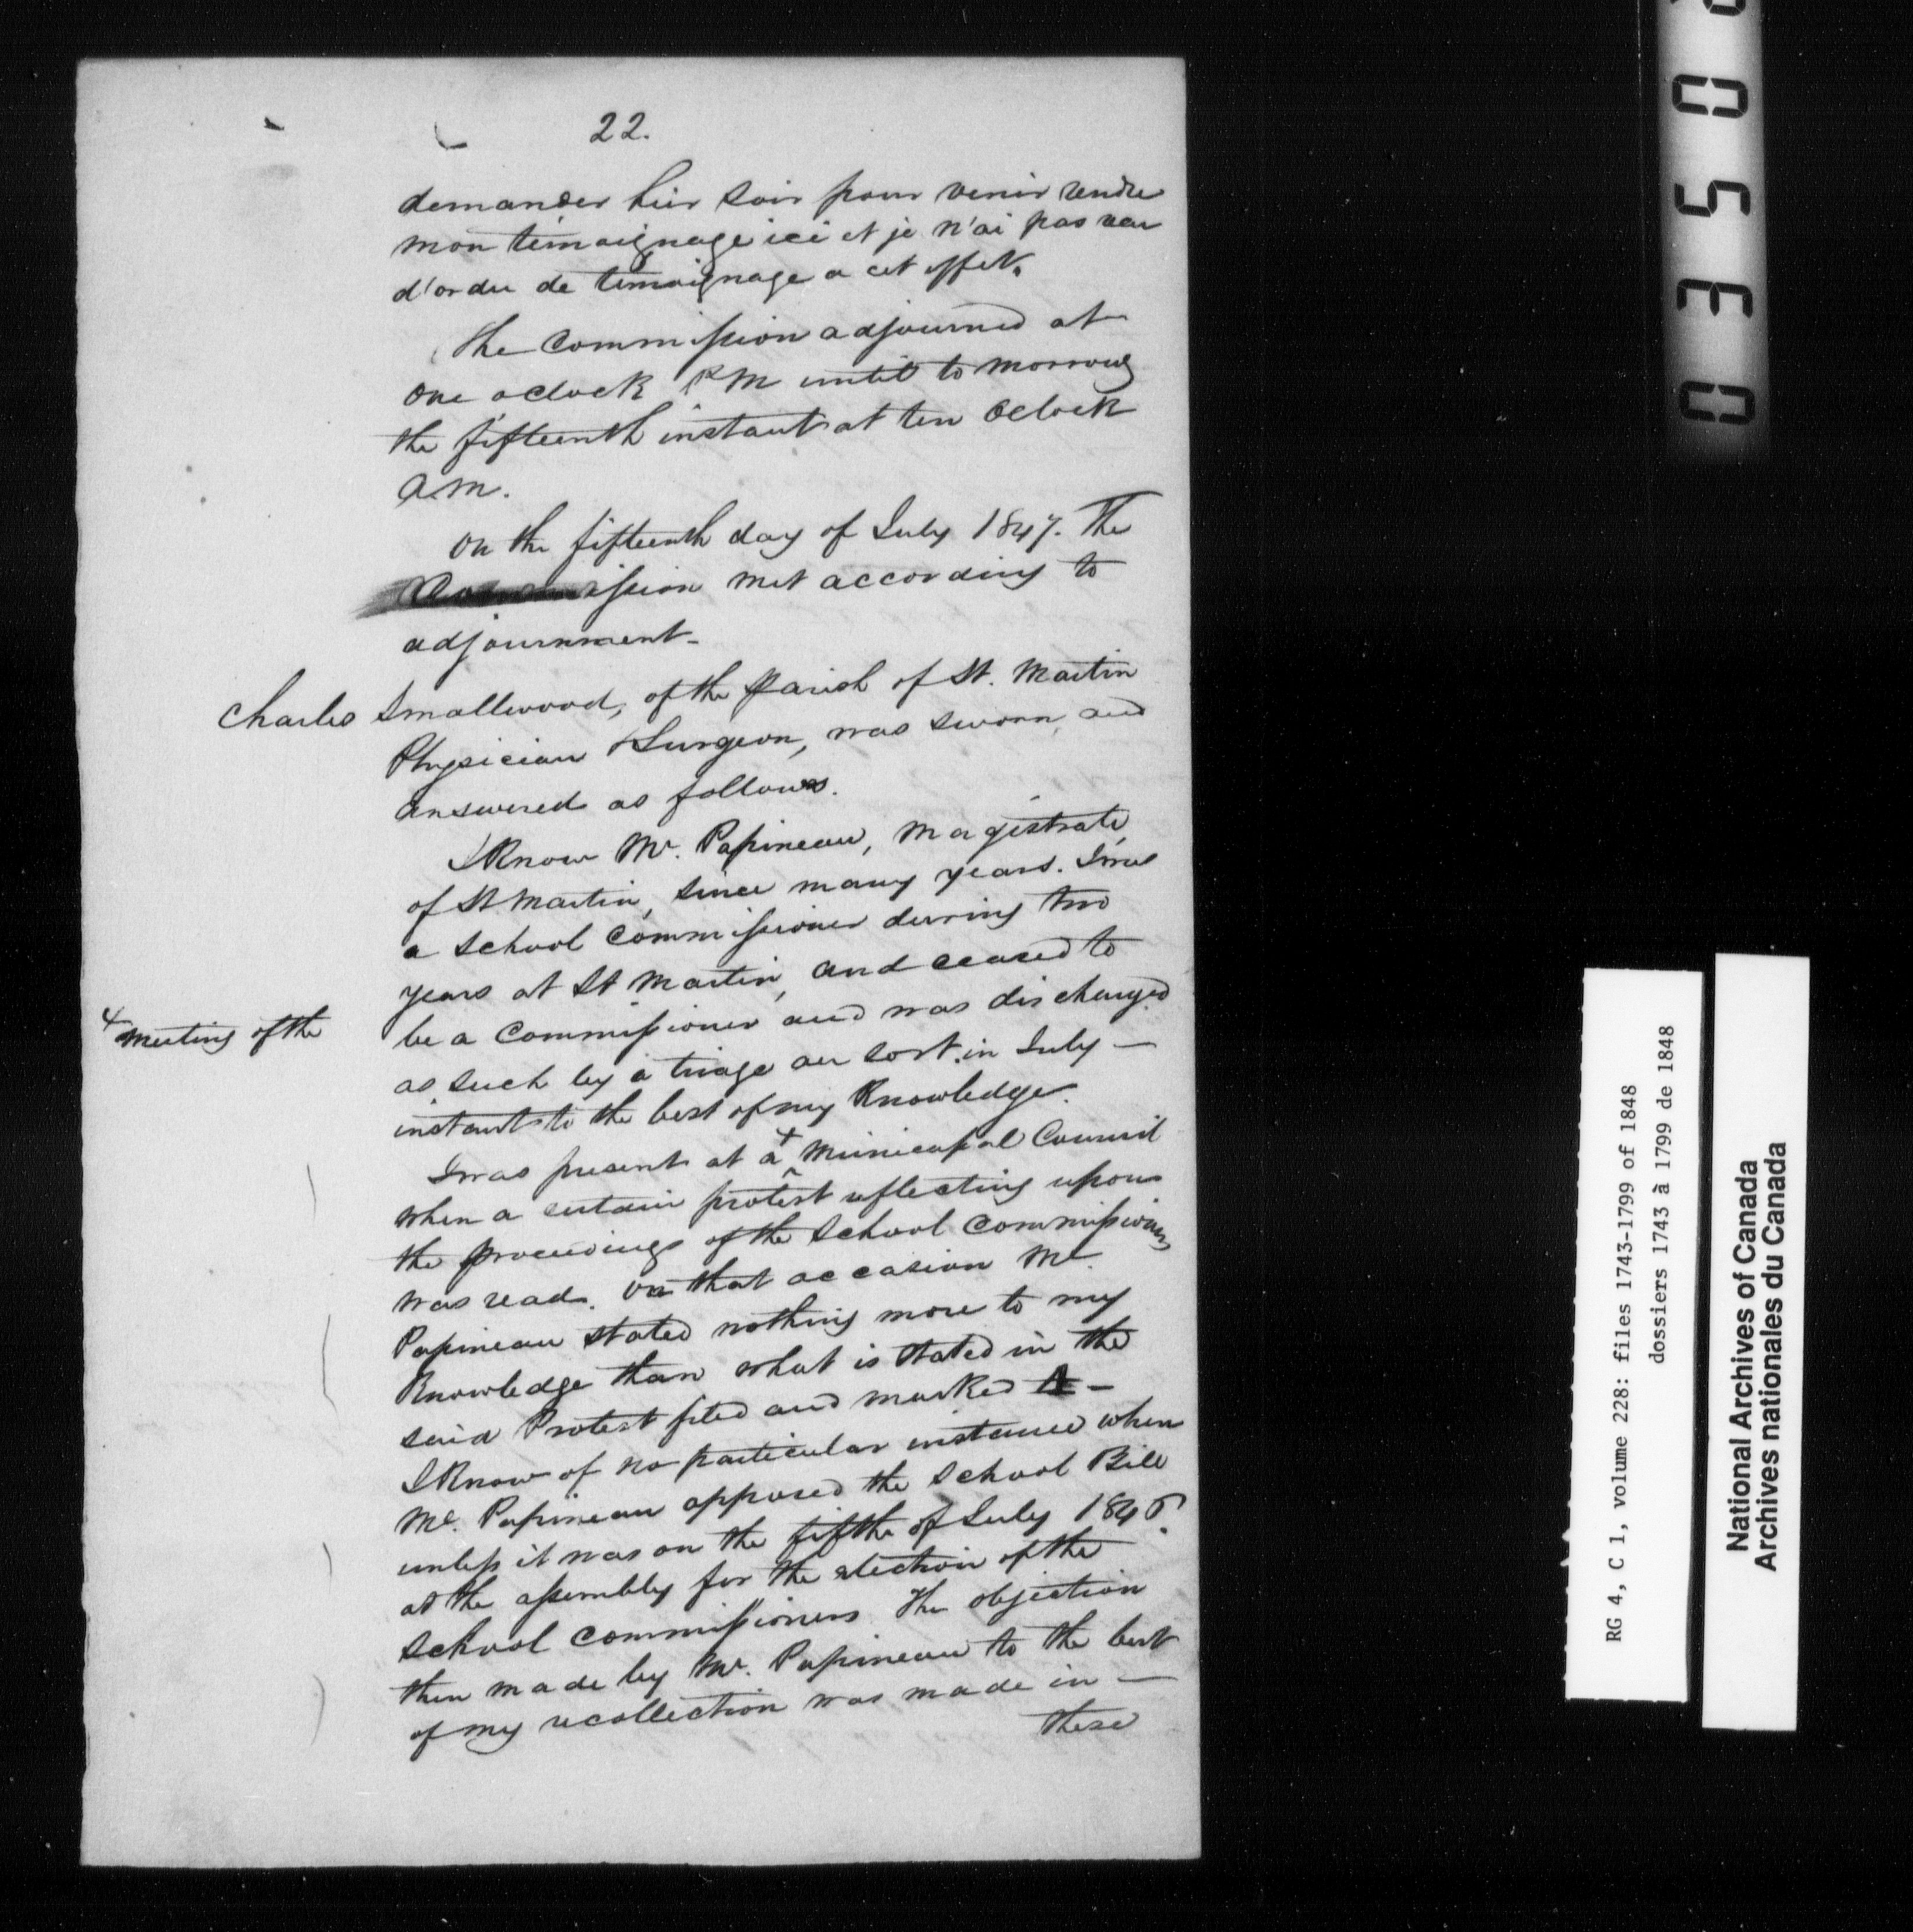 22.
demander hier soir pour venir rendre
mon témoignage ici et je n'ai pas
d'ordre de témoignage a cet effet.
The Commission adjourned at
one oclock PM until to morrow
the fifteenth instant at ten Oclock
A.M.
On the fifteenth day of July 1847. The
Commission met according to
adjournment-
Charles Smallwood, of the Parish of St. Martin
Physician & Surgeon, was sworn, and
answered as follows.
I Know Mr. Papineau, Magistrate,
of St Martin, since many years. I was
a School Commissioner during two
years at St Martin, and ceased to
be a Commissioner and was discharged
as such by a tirage au sort in July —
instant to the best of my Knowledge.
+ meeting of the
I was present at a + Municipal Council
when a certain protest reflecting upon
the proceedings of the School Commissioners
was read. On that occasion Mr.
Papineau stated nothing more to my
Knowledge than what is stated in the
said Protest filed and marked A —
I Know of no particular instance when
Mr. Papineau opposed the School Bill
unless it was on the fifth of July 1846.
at the assembly for the election of the
School Commissioners The objection
then made by Mr. Papineau to the best
of my recollection was made in —
these
0350
RG 4, C 1, volume 228: files 1743-1799 of 1848
dossiers 1743 à 1799 de 1848
National Archives of Canada
Archives nationales du Canada